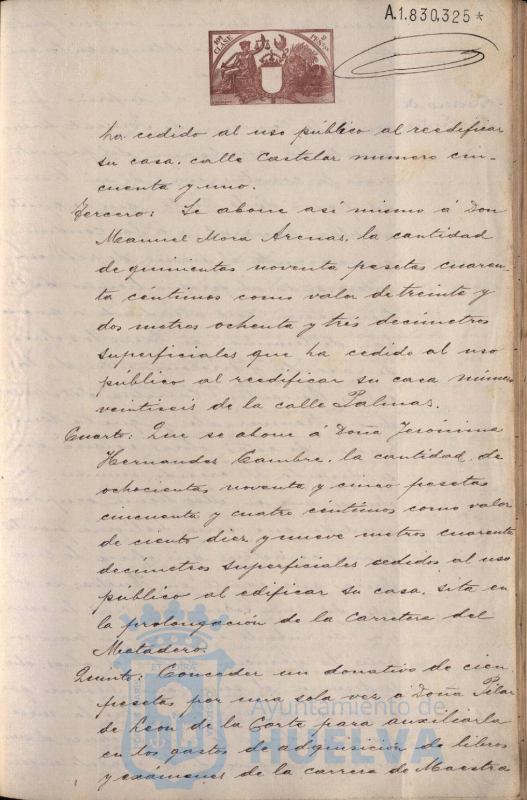 A.1.830,325*
10ª CLASE
ha cedido al uso público al reedificar
su casa, calle Castelar numero cin-
cuenta y uno.
Tercero: Se abone así mismo á Don
Manuel Mora Arenas, la cantidad
de quinientas noventa pesetas cuaren-
ta céntimos como valor de treinta y
dos metros ochenta y tres decímetros
superficiales que ha cedido al uso
público al reedificar su casa número
veintiseis de la calle Palmas.
Cuarto: Que se abone á Doña Jerónima
Hernandez Cambre, la cantidad de
ochocientas noventa y cinco pesetas
cincuenta y cuatro céntimos como valor
de ciento diez y nueve metros cuarenta
decímetros superficiales sedidos al uso
público al edificar su casa, sita en
la prolongación de la Carretera del
Matadero.
Quinto: Conceder un donativo de cien
pesetas por una sola vez á Doña Pilar
de Leon de la Corte para auxiliarla
en los gastos de adquisición de libros
y exámenes de la carrera de Maestra
Ayuntamiento de
HUELVA